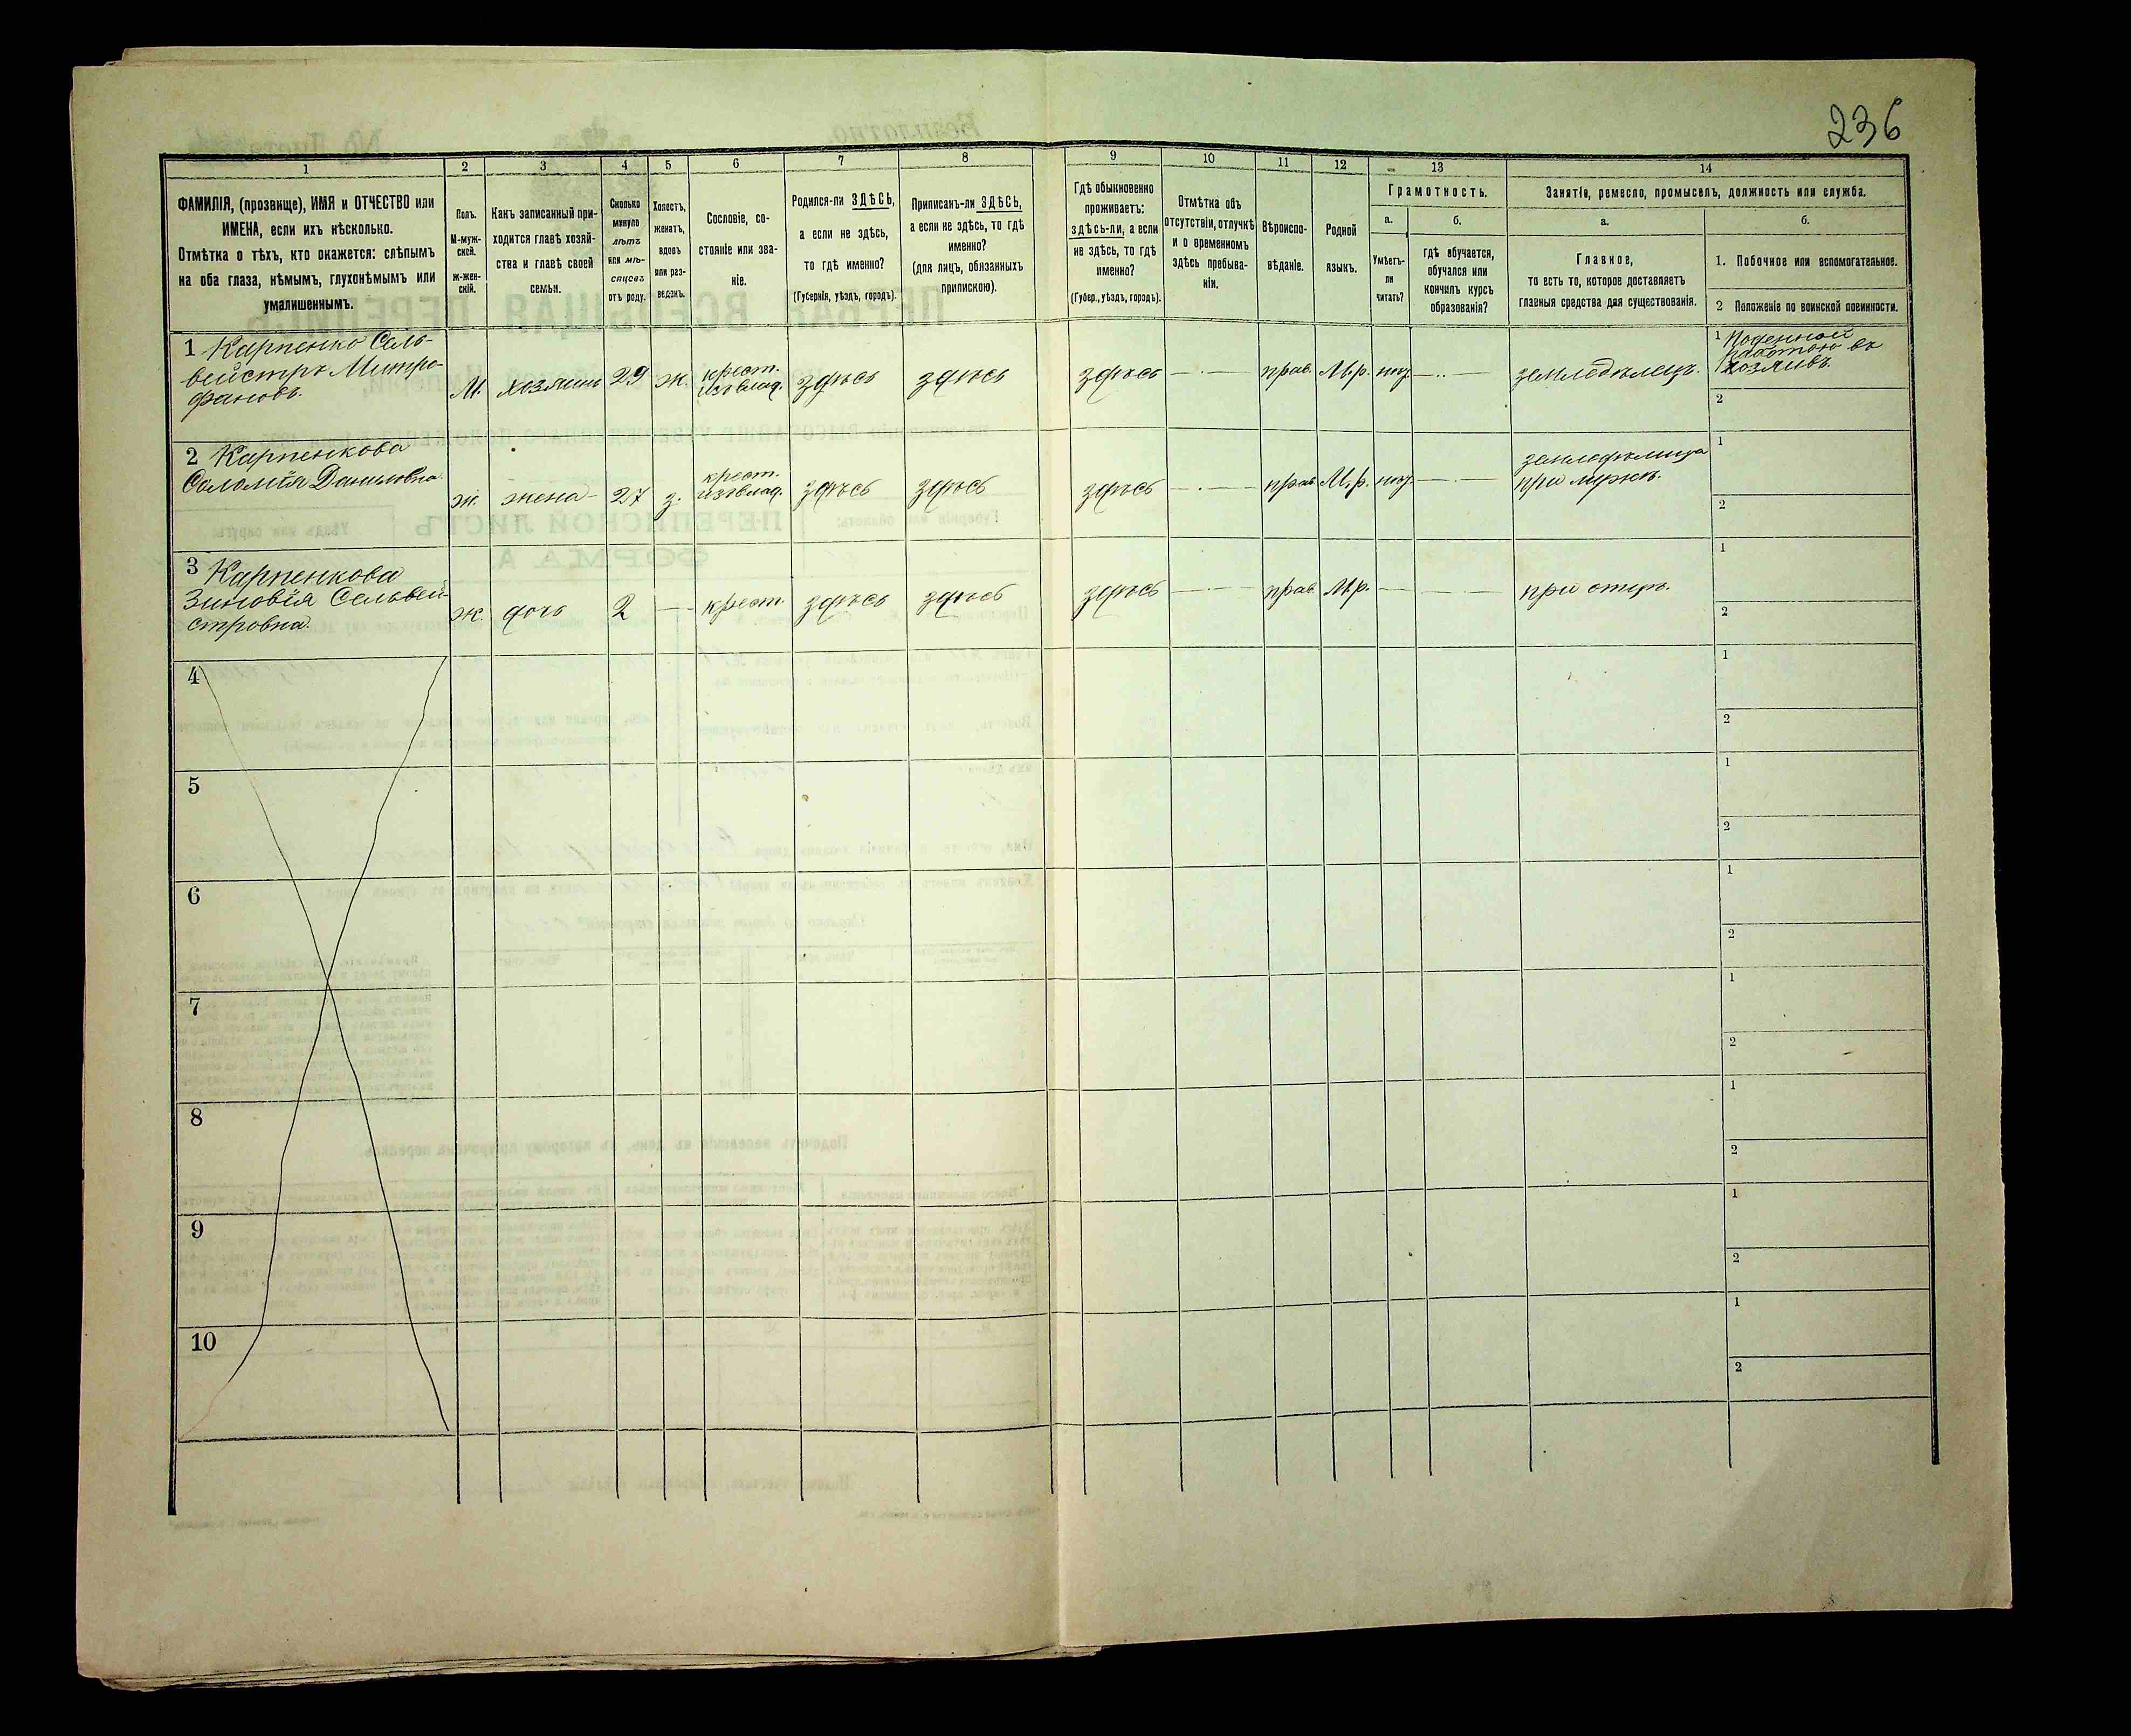 236
1
2
3
4
5
6
7
8
9
10
11
12
13
14
ФАМИЛІЯ, (прозвище), ИМЯ и ОТЧЕСТВО или
ИМЕНА, если ихъ нѣсколько.
Отмѣтка о тѣхъ, кто окажется: слѣпымъ
на оба глаза, нѣмымъ, глухонѣмымъ или
умалишеннымъ.
Полъ.
М-муж-
ской.
ж-жен-
скій.
Какъ записанный при-
ходится главѣ хозяй-
ства и главѣ своей
семьи.
Сколько
минуло
лѣтъ
или мѣ-
сяцевъ
отъ роду.
Холостъ,
женатъ,
вдовъ
или раз-
веденъ.
Сословіе, со-
стояніе или зва-
ніе.
Родился-ли ЗДѢСЬ,
а если не здѣсь,
то гдѣ именно?
(Губернія, уѣздъ, городъ).
Приписанъ-ли ЗДѢСЬ,
а если не здѣсь, то гдѣ
именно?
(для лицъ, обязанныхъ
припискою).
Гдѣ обыкновенно
проживаетъ:
здѣсь-ли, а если
не здѣсь, то гдѣ
именно?
(Губер., уѣздъ, городъ).
Отмѣтка объ
отсутствіи, отлучкѣ
и о временномъ
здѣсь пребыва-
ніи.
Вѣроиспо-
вѣданіе.
Родной
языкъ.
Грамотность.
а.
б.
Умѣетъ-
ли
читать?
гдѣ обучается,
обучался или
кончилъ курсъ
образованія?
Занятіе, ремесло, промыселъ, должность или служба.
а.
б.
Главное,
то есть то, которое доставляетъ
главныя средства для существованія.
1. Побочное или вспомогательное.
2 Положеніе по воинской повинности.
1 Карпенко Сель-
вейстръ Митро-
фановъ.
М.
хозяинъ
29
ж.
крест.
изъ влад.
здѣсь
здѣсь
здѣсь
прав.
М.р.
нѣт.
земледѣлецъ.
1 Поденной
работою въ
хозяивъ.
2
2 Карпенкова
Саломія Даниловна
ж.
жена
27
з.
крест.
изъ влад.
здѣсь
здѣсь
здѣсь
прав.
М.р.
нѣт.
земледѣлица
при мужѣ.
1
2
3 Карпенкова
Зиновія Сельвей-
стровна.
ж.
дочь
2
крест.
здѣсь
здѣсь
здѣсь
прав.
М.р.
при отцѣ.
1
2
4
1
2
5
1
2
6
1
2
7
1
2
8
1
2
9
1
2
10
1
2